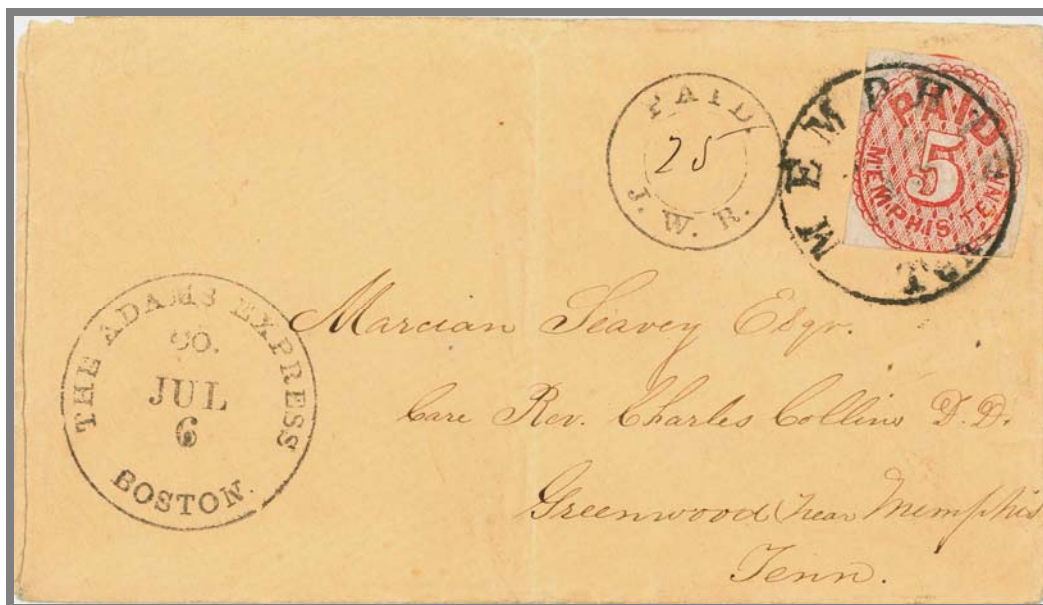 PAID.
25
J. W. R.
MEMPHIS
PAID
5
MEMPHIS TENN
THE ADAMS EXPRESS
CO.
JUL
6
BOSTON.
Marcian Seavey Esqr.
Care Rev. Charles Collins D.D.
Greenwood near Memphis
Tenn.